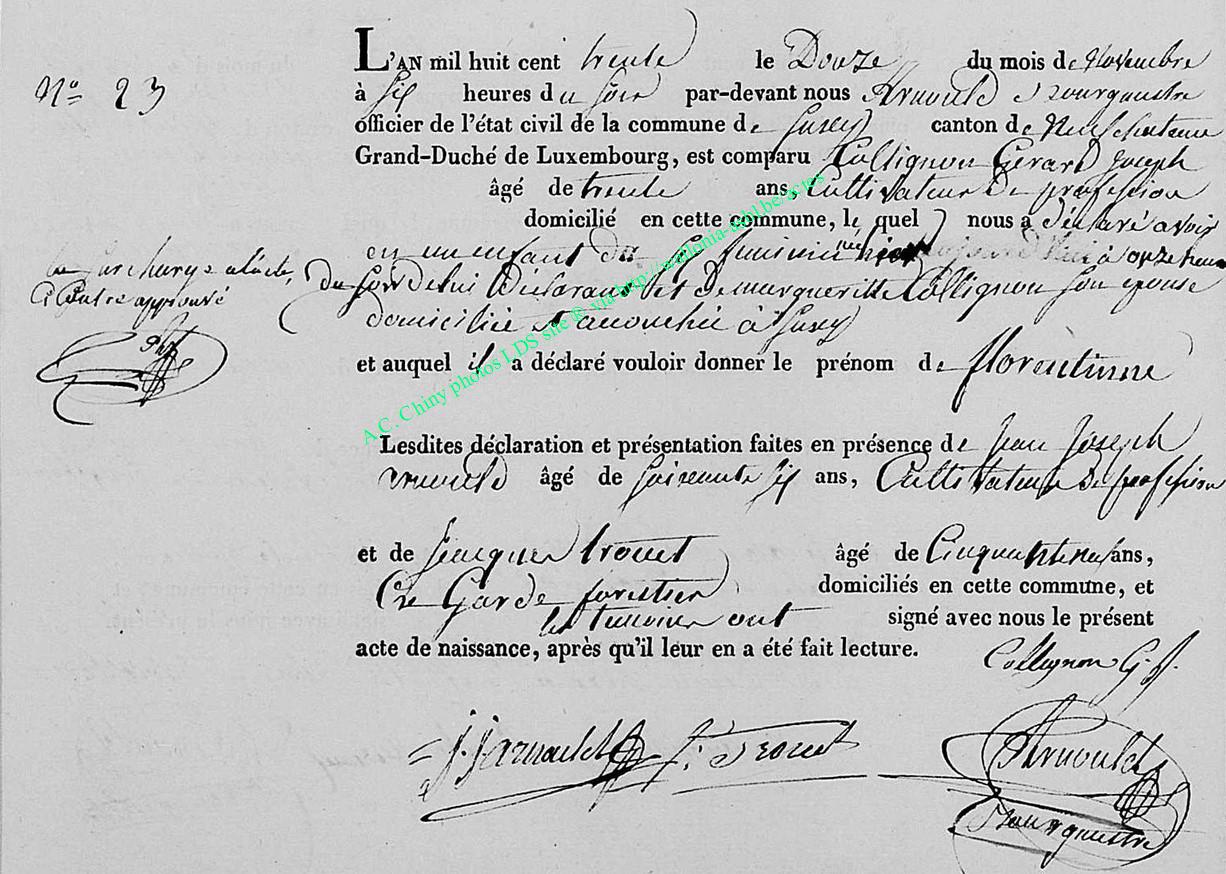 N° 23
L'AN mil huit cent trente le Douze du mois de Novembre
à six heures du soir par-devant nous Arnould Bourguestre
officier de l'état civil de la commune de Suxy canton de Neufchateau
Grand-Duché de Luxembourg, est comparu Collignon Gerard Joseph
âgé de trente ans, Cultivateur de profession
domicilié en cette commune, le quel nous a déclaré avoir
eu un enfant du sexe feminin née hier à onze heure
du soir de lui Déclarant et de margueritte Collignon son epouse
domiciliée et accouchée à Suxy
la surcharge a l'acte
Ci Contre approuvé
et auquel il a déclaré vouloir donner le prénom de florentinne
Lesdites déclaration et présentation faites en présence de Jean Joseph
arnould âgé de soixante six ans, Cultivateur de profession
et de Jacques trouet âgé de Cinquante neuf ans,
Garde forestier domiciliés en cette commune, et
les temoins ont signé avec nous le présent
acte de naissance, après qu'il leur en a été fait lecture.
Collignon G. J.
J. J. Arnould J. Trouet Arnould
Bourguestre
A.C. Chiny photos LDS site ® via http://wallonia-asbl.be/actes